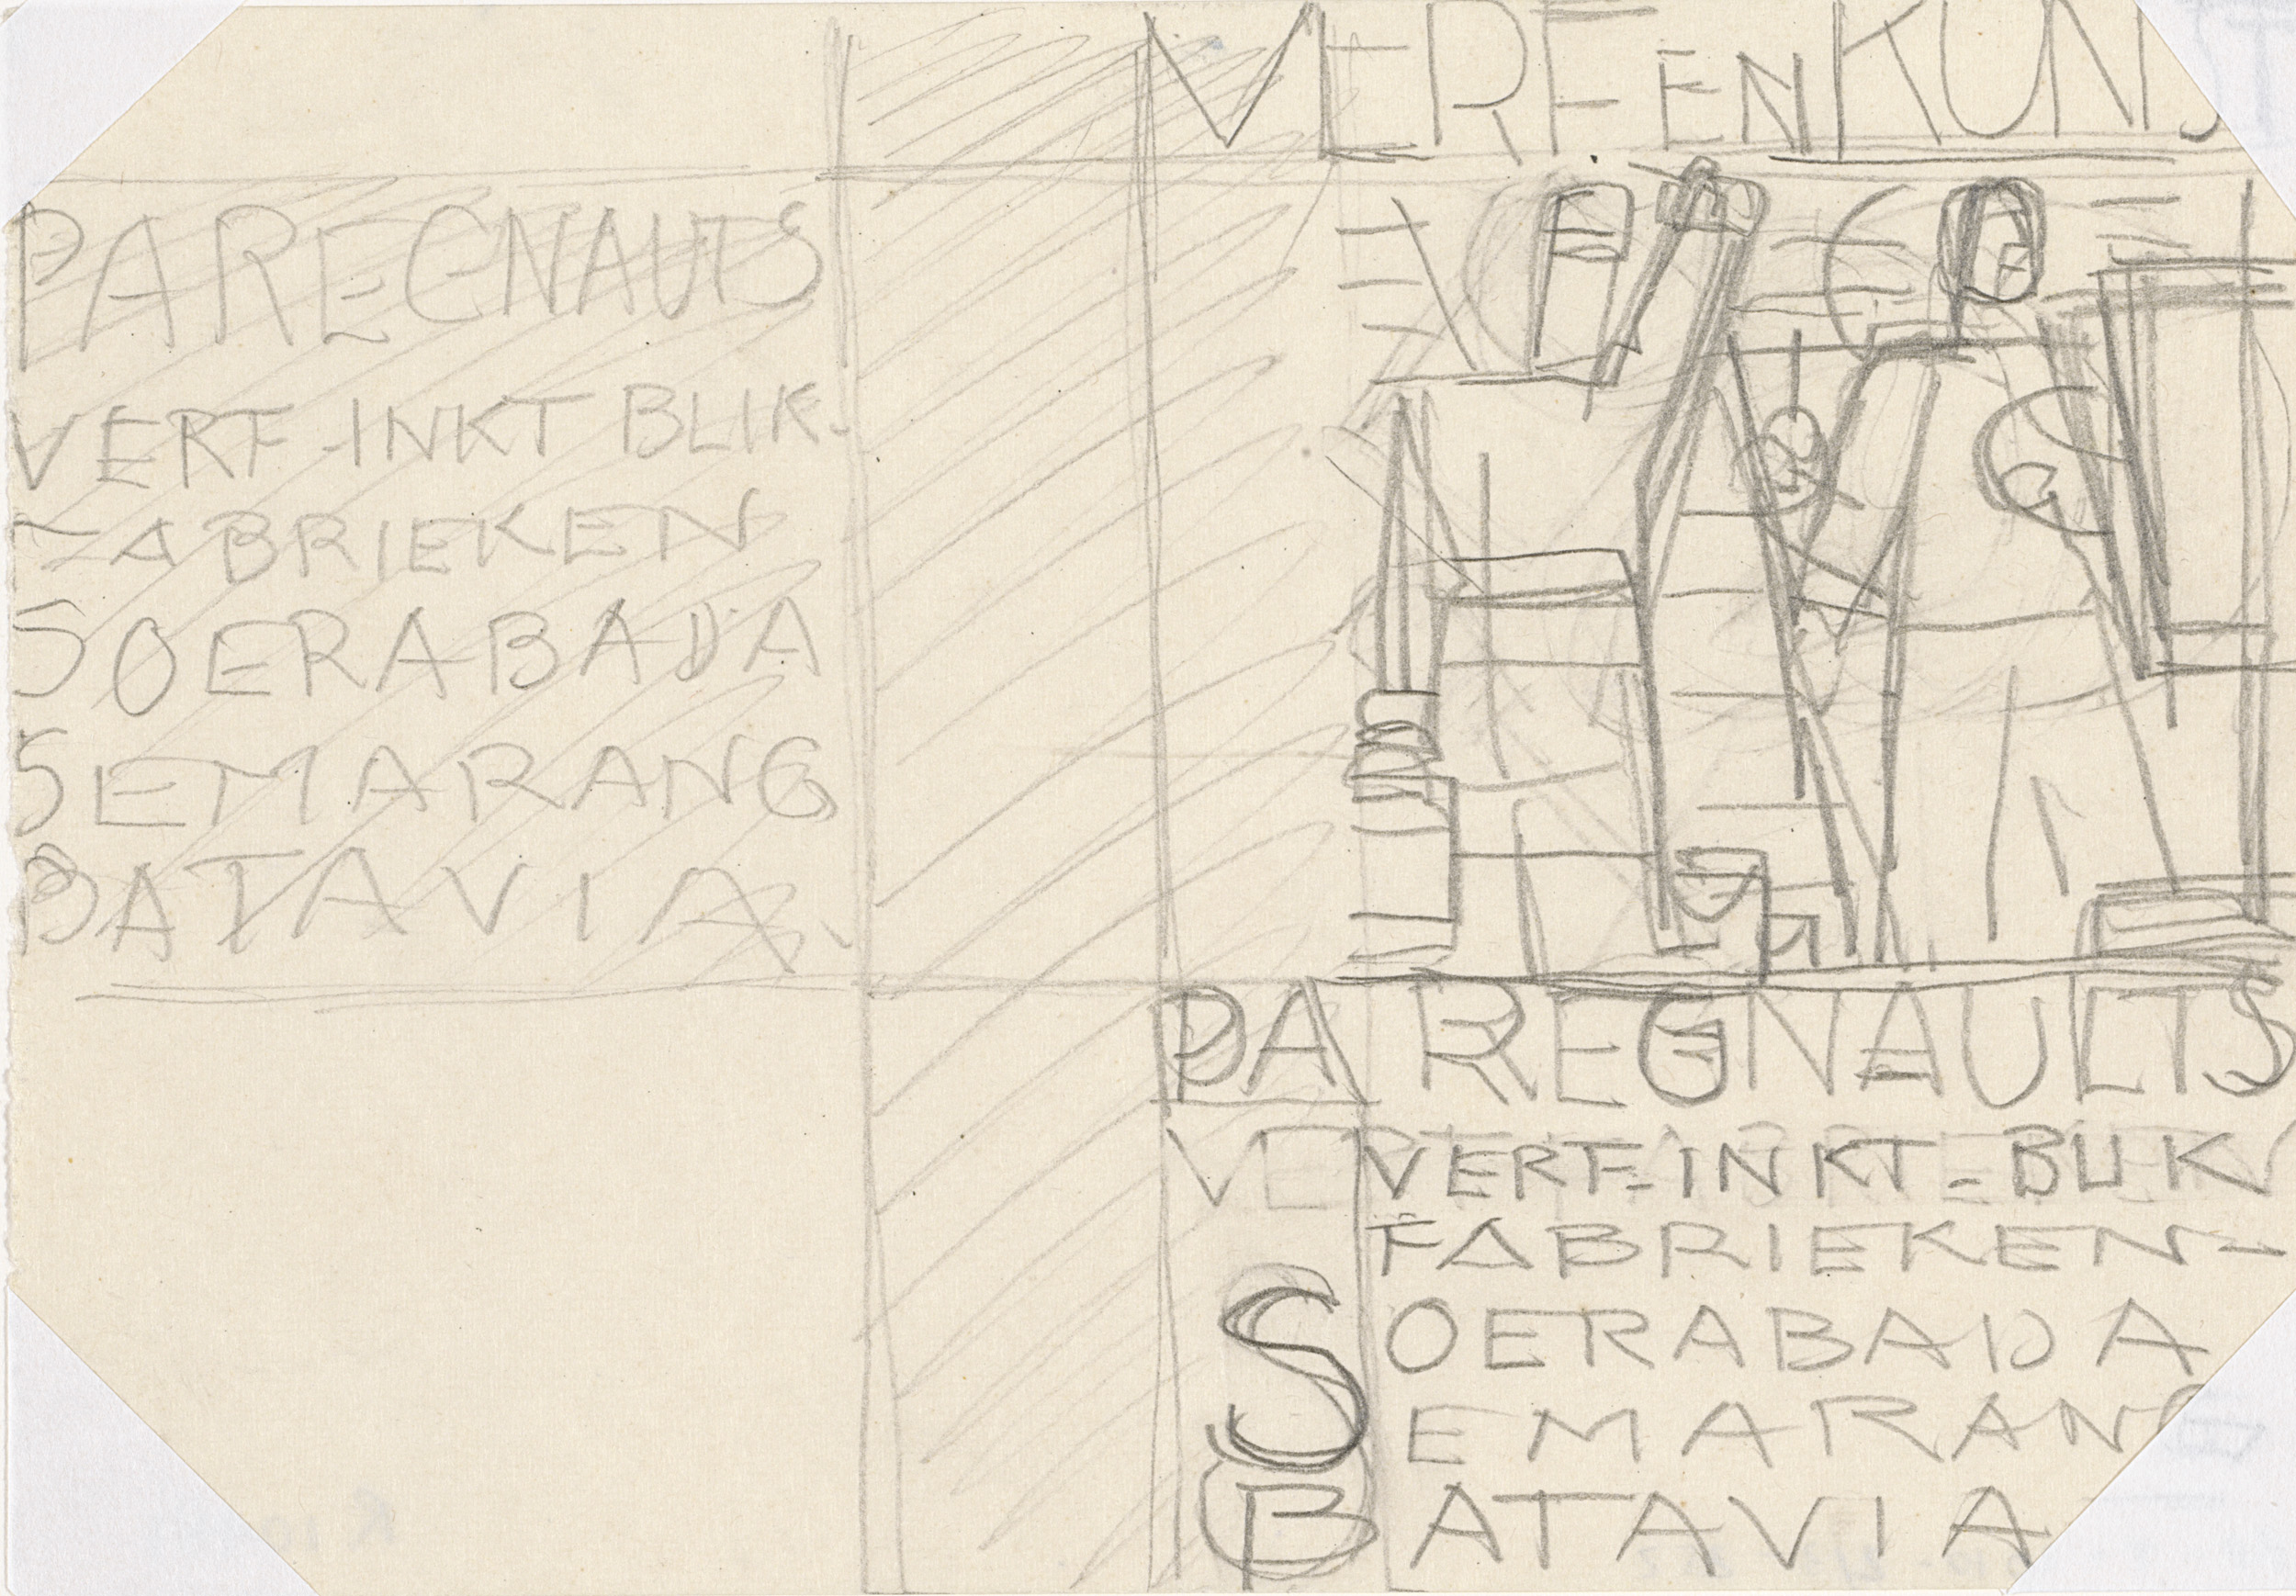 VERF EN KUNS
PA REGNAULTS
VERF-INKT BLIK-
FABRIEKEN
SOERABAJA
SEMARANG
BATAVIA.
PA REGNAULTS
VERF-INKT-BLIK
FABRIEKEN-
SOERABAJA
SEMARANG
BATAVIA